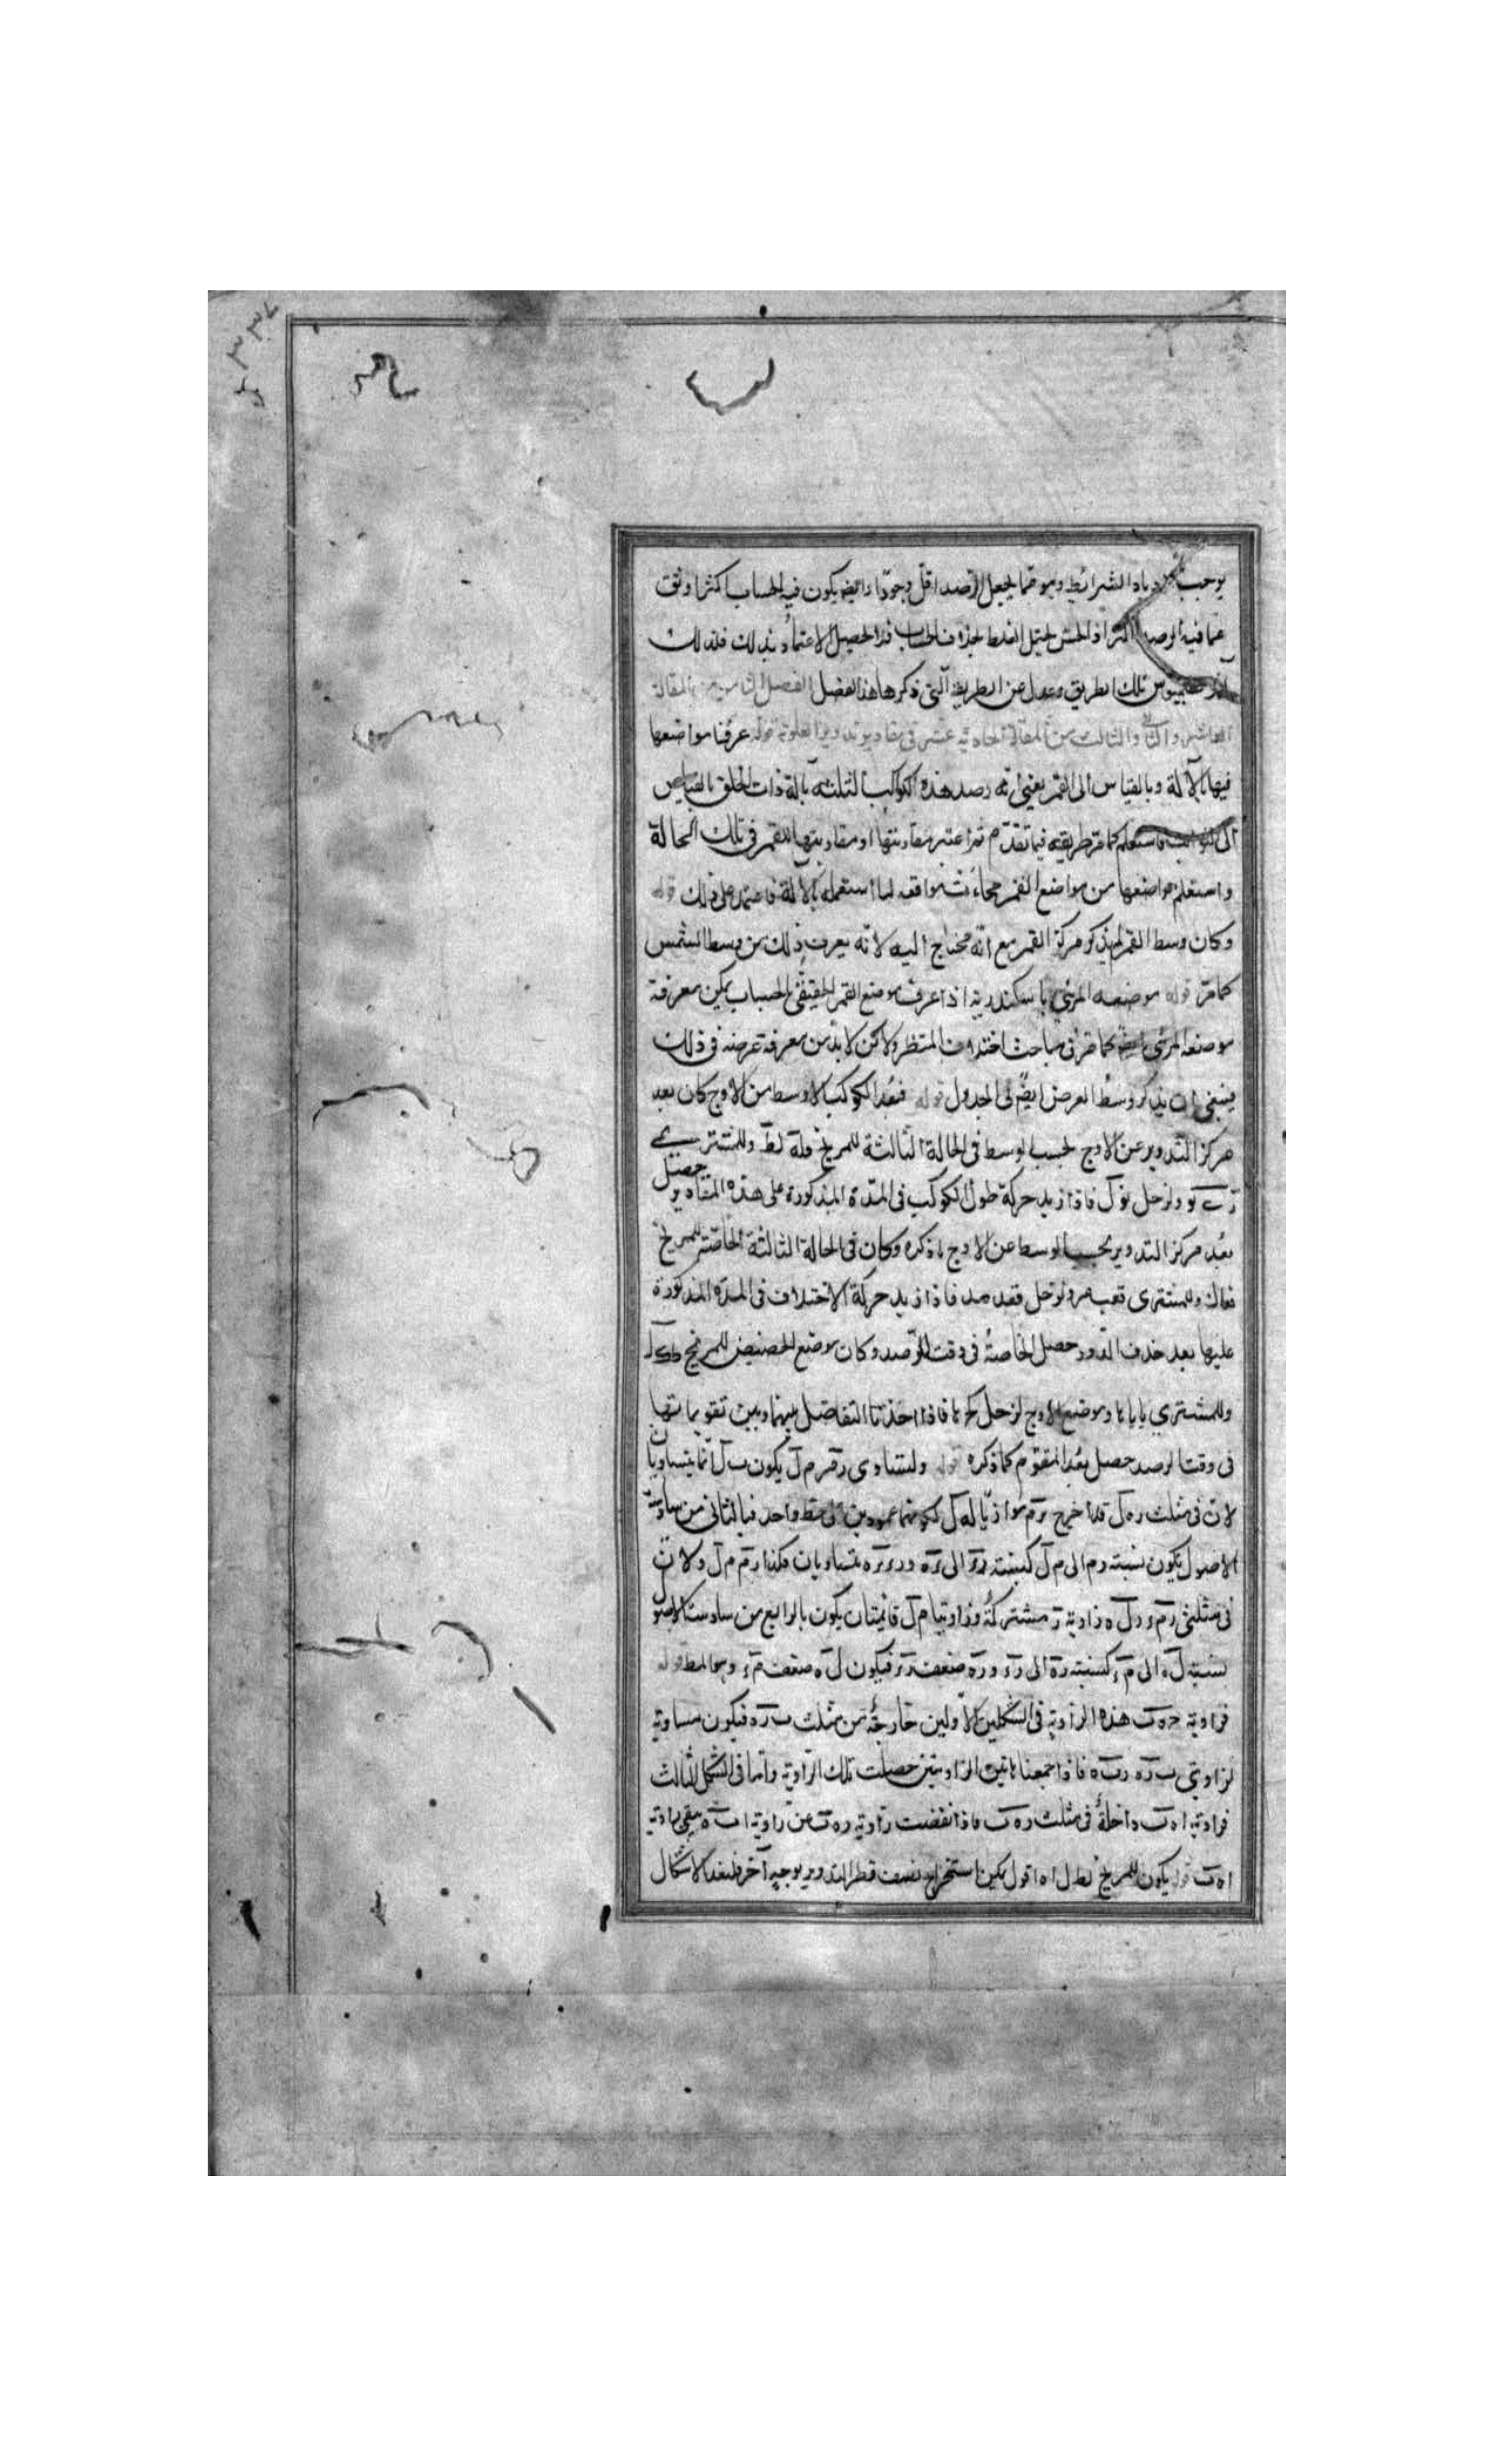 يوجب ازدياد الشرائط وهو مما يجعل الرصد اقل وجودا وايضا يكون فيه الحساب اكثر اوثق
مما فيه الرصد اكثر اذ الحس يحتمل الغلط بخلاف الحساب فلا يحصل الاعتماد بذلك فلذلك
بطلميوس تلك الطريق وعدل عن الطريقة التي ذكرها هذا الفضل الفصل الثامن من المقالة
العاشر والثاني والثالث من المقالة الحادية عشر في مقادير تداوير العلوية قوله عرفنا مواضعها
فيها بالآلة وبالقياس الى القمر يعني انه رصد هذه الكواكب الثلثة بآلة ذات الحلق بالقياس
الى الثوابت فاستعلم كما مر طريقه فيما تقدم ثم اعتبر مقارنتها او مقاربتها للقمر في تلك الحالة
واستعلم مواضعها من مواضع القمر فجاءت موافقه لما استعمله بالآلة فاعتمد على ذلك قوله
وكان وسط القمر لم يذكر مركز القمر مع انه محتاج اليه لانه يعرف ذلك من وسط الشمس
كما مر قوله موضعه المرئي باسكندرية اذا عرف موضع القمر الحقيقي بالحساب يمكن معرفة
موضعه المرئي كما مر في مباحث اختلاف المنظر ولاكن لا بد من معرفة عرضه في ذلك
فينبغي ان يذكر وسط العرض ايضا في الجدول قوله فبعد الكوكب الاوسط من الاوج كان بعد
مركز التدوير عن الاوج بحسب الوسط في الحالة الثالثة للمريخ قلة لط وللمشتري
ولزحل نو ل فاذا زيد حركة طول الكوكب في المدة المذكورة على هذه المقادير حصل
بعد مركز التدوير بحسب الوسط عن الاوج ما ذكره وكان في الحالة الثالثة الخاصة للمريخ
قعا ك وللمشتري قعب مر ولزحل قعد مد فاذا زيد حركة الاختلاف في المدة المذكورة
عليها بعد حذف الدور حصل الخاصة في وقت الرصد وكان موضع الحضيض للمريخ
وللمشتري يا يا يا وموضع الاوج لزحل كح يا فاذا اخذنا التفاضل بينها وبين تقويماتها
في وقت الرصد حصل بعد المقوم كما ذكره قوله ولتساوي ر م م ل يكون ب ل انما يتساويان
لان في مثلث ر ه ل قد اخرج م موازيا له ل لكونهما عمودين على خط واحد فبالثاني من سادسة
الاصول يكون نسبة ر م الى م ل كنسبة ر الى ه و ر ه متساويان فكذا ر م م ل ولان
في مثلثي ر م ء ر ل ه زاوية ر مشتركة وزاويتا م ل قائمتان يكون بالرابع من سادسة الاصول
نسبة ل ه الى م ء كنسبة ر ه الى ر ء و ر ه ضعف ر ء فيكون ل ه ضعف م ء وهو المط قوله
فزاوية ح ه ب هذه الزاوية في الشكلين الاولين خارجة من مثلث ب ر ه فيكون مساوية
لزاويتي ب ر ه ر ب ه فاذا جمعنا هاتين الزاويتين حصلت تلك الزاوية واما في الشكل الثالث
فزاوية ا ه ب داخلة في مثلث ر ه ب فاذا نقصت زاوية ر ه ب عن زاوية ا ب ه يبقى زاوية
ا ه ب قوله يكون للمريخ لط ل ا ه اقول يمكن استخراج نصف قطر التدوير بوجه آخر فلنعد الاشكال